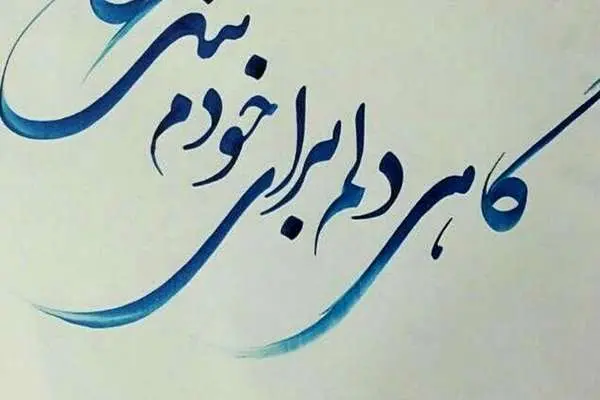 گاهی دلم برای خودم